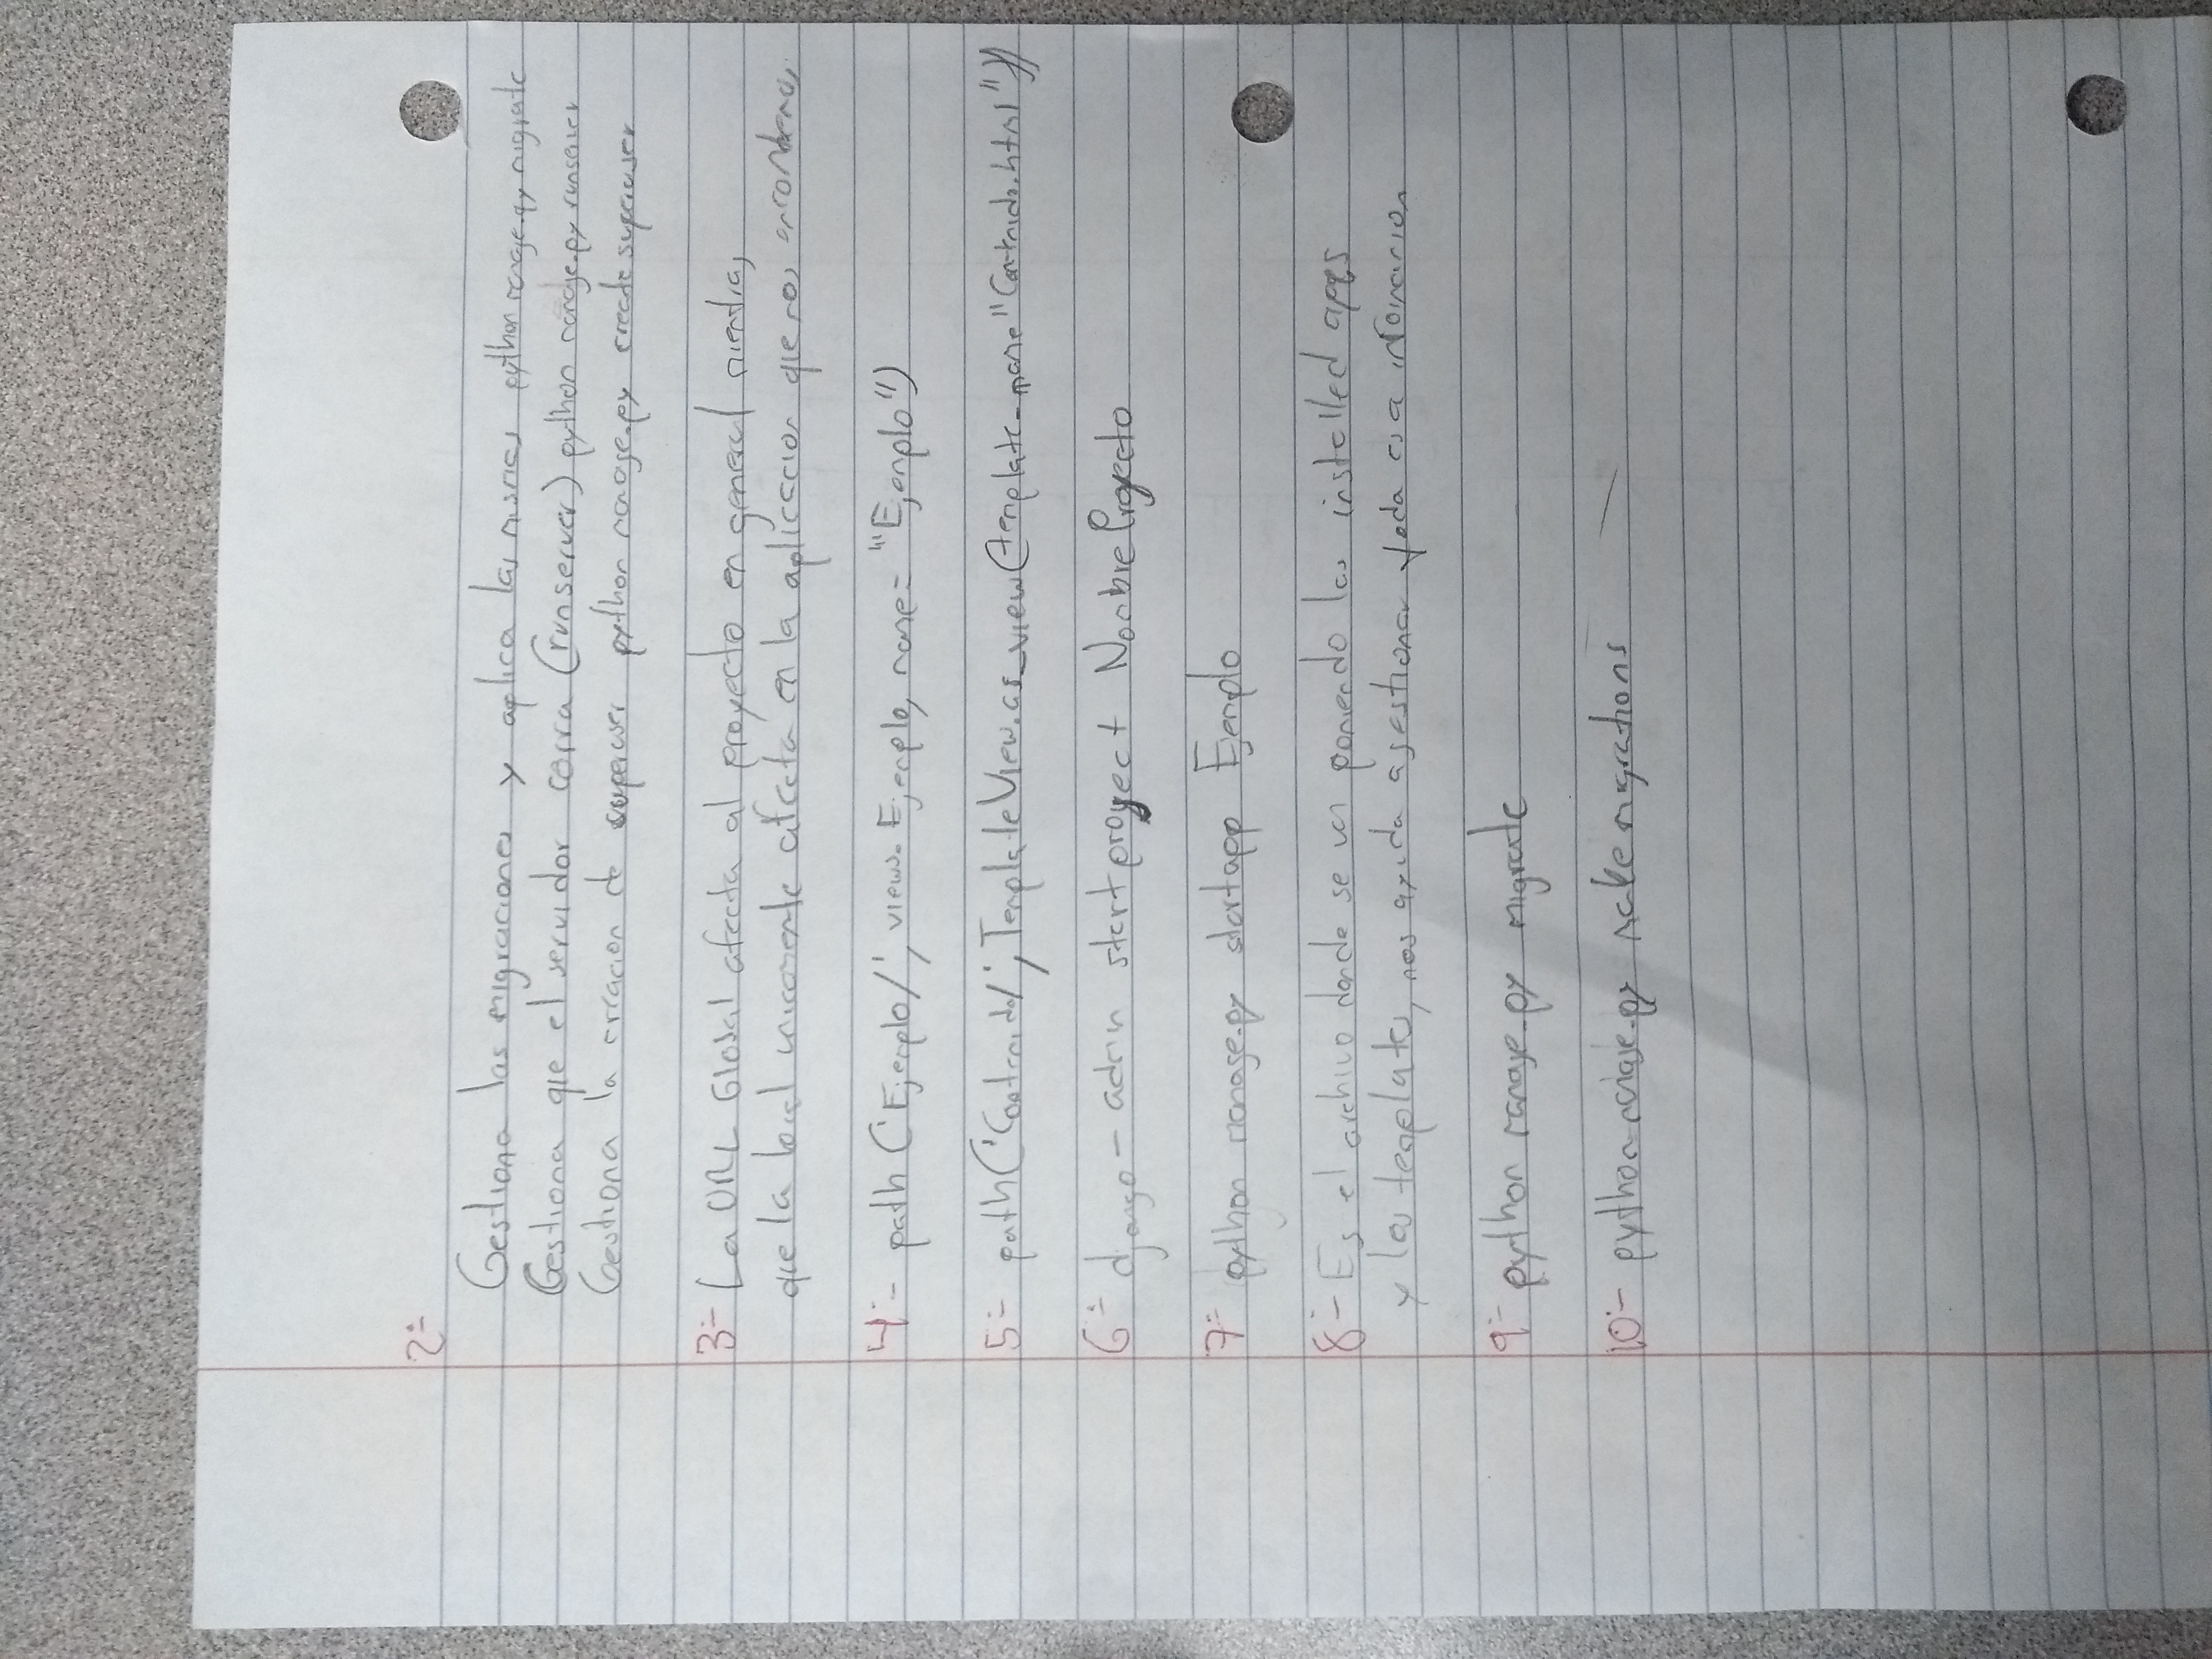 2.-
Gestiona las migraciones y aplica las mismas python manage.py migrate
Gestiona que el servidor corra (runserver) python manage.py runserver
Gestiona la creacion de superuser python manage.py create superuser
3.- La URL Global afecta al proyecto en general mientras
que la local unicamente afecta en la apliccion que nos encontremos
4.- path('Ejemplo/', views.Ejemplo, name= "Ejemplo")
5.- path('Contraido/', TemplateView.as_view(template_name "Contraido.html"))
6.- django-admin startproyect NombreProyecto
7.- python manage.py startapp Ejemplo
8.- Es el archivo donde se van poniendo las installed apps
y los templates, nos ayuda a gestionar toda esa informacion
9.- python manage.py migrate
10.- python manage.py makemigrations